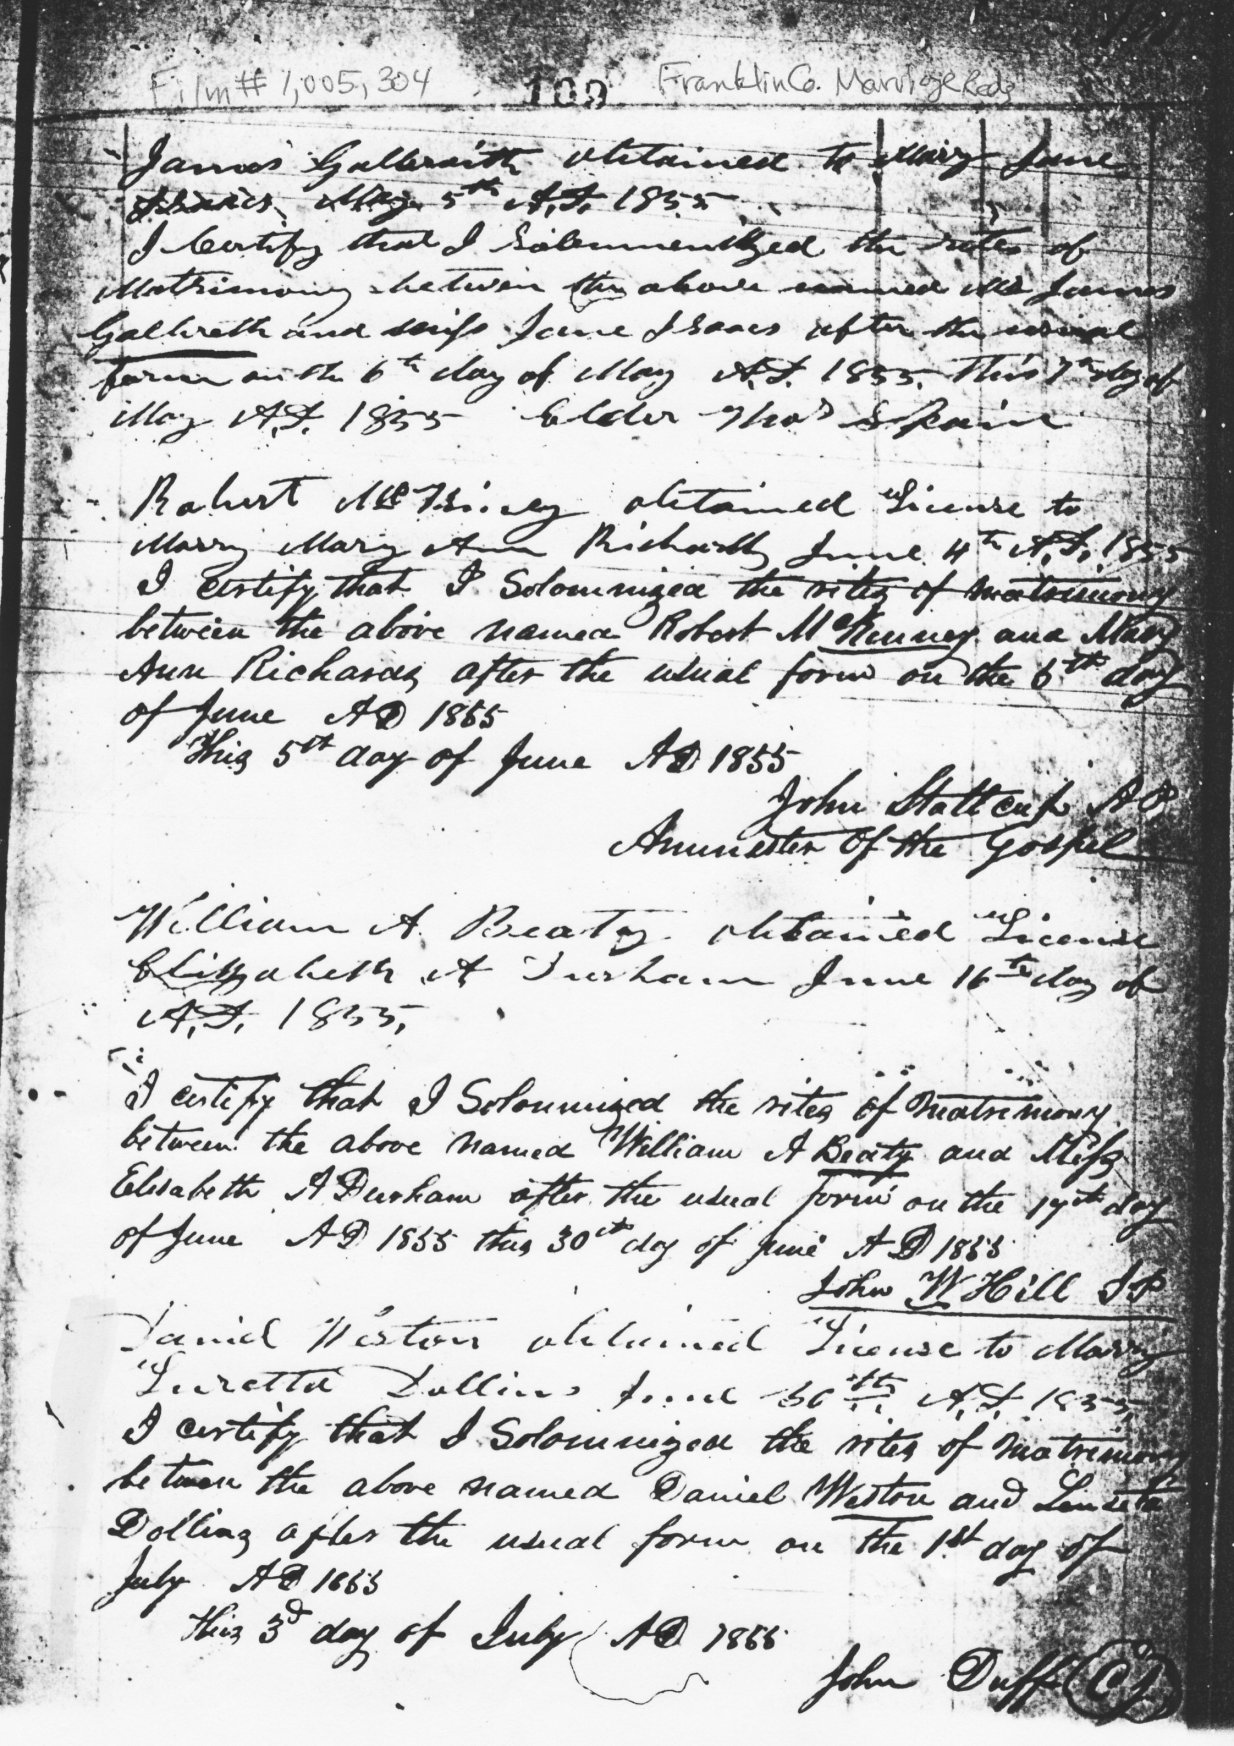 Film # 1,005,304 109 Franklin Co. Marriage Rcds
James Galbraith obtained to Mary Jane
Isaacs May 5th A.D. 1855
I Certify that I Solemnized the rites of
Matrimony between the above named Mr James
Galbreth and miss Jane Isaacs after the usual
form on the 6th day of May A.D. 1855. This 7th day of
May A.D. 1855 Elder Thos Spain
Robert McKinney obtained License to
Marry Mary Ann Richards June 4th A.D. 1855
I certify that I Solomnized the rites of matrimony
between the above named Robert McKinney and Mary
Ann Richards after the usual form on the 5th day
of June AD 1855
This 5th day of June AD 1855
John Stattcup
Aminister Of the Gospel
William A. Beaty obtained License
Elizabeth A Durham June 16th day of
A.D. 1855,
I certify that I Solomnized the rites of matrimony
between the above named William A Beaty and Miss
Elisabeth A Durham after the usual form on the 17th day
of June AD 1855 this 30th day of June AD 1855
John W Hill JP
Daniel Weston obtained License to Marry
Luretta Dollins June 30th A.D. 1855
I certify that I Solomnized the rites of matrimony
between the above named Daniel Weston and
Dollins after the usual form on the 1st day of
July AD 1855
This 3d day of July AD 1855
John Duff